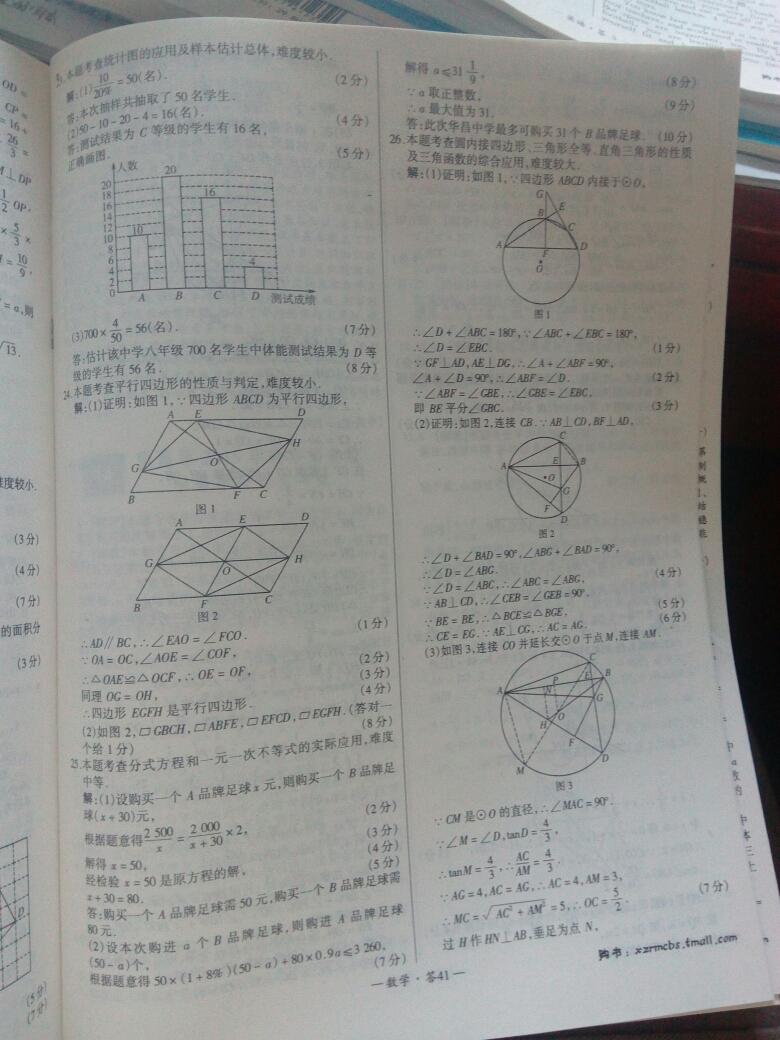 OD =
CP =
= 16 +
26
3 =
M⊥DP
1
2 OP,
× 5/3 ×
= 10/9,
= a,则
√13.
难度较小.
(3分)
(4分)
(7分)
的面积分
(3分)
D
(5分)
(7分)
23.本题考查统计图的应用及样本估计总体,难度较小.
解:(1)10/20% = 50(名). (2分)
答:本次抽样共抽取了 50 名学生.
(2)50 - 10 - 20 - 4 = 16(名). (4分)
答:测试结果为 C 等级的学生有 16 名,
正确画图. (5分)
人数
20
20
18
16
16
14
12
10
10
8
6
4
4
2
0
A B C D 测试成绩
(3)700 × 4/50 = 56(名). (7分)
答:估计该中学八年级 700 名学生中体能测试结果为 D 等
级的学生有 56 名. (8分)
24.本题考查平行四边形的性质与判定,难度较小.
解:(1)证明:如图 1,∵四边形 ABCD 为平行四边形,
A E D
H
G O
B F C
图1
A E D
G O H
B F C
图2
∴AD∥BC,∴∠EAO = ∠FCO. (1分)
∵OA = OC,∠AOE = ∠COF,
∴△OAE≌△OCF,∴OE = OF, (2分)
同理 OG = OH, (3分)
∴四边形 EGFH 是平行四边形. (4分)
(2)如图 2,▱GBCH,▱ABFE,▱EFCD,▱EGFH.(答对一
个给 1 分) (8分)
25.本题考查分式方程和一元一次不等式的实际应用,难度
中等.
解:(1)设购买一个 A 品牌足球 x 元,则购买一个 B 品牌足
球(x + 30)元, (2分)
根据题意得 2 500/x = 2 000/(x + 30) × 2, (3分)
解得 x = 50, (4分)
经检验 x = 50 是原方程的解, (5分)
x + 30 = 80.
答:购买一个 A 品牌足球需 50 元,购买一个 B 品牌足球需
80 元.
(2)设本次购进 a 个 B 品牌足球,则购进 A 品牌足球
(50 - a)个,
根据题意得 50 × (1 + 8%)(50 - a) + 80 × 0.9a ≤ 3 260, (7分)
解得 a ≤ 31 1/9, (8分)
∵a 取正整数,
∴a 最大值为 31. (9分)
答:此次华昌中学最多可购买 31 个 B 品牌足球. (10分)
26.本题考查圆内接四边形、三角形全等、直角三角形的性质
及三角函数的综合应用,难度较大.
解:(1)证明:如图 1,∵四边形 ABCD 内接于⊙O,
G
E
B
C
A F D
O
图1
∴∠D + ∠ABC = 180°,∵∠ABC + ∠EBC = 180°,
∴∠D = ∠EBC. (1分)
∵GF⊥AD,AE⊥DG,∴∠A + ∠ABF = 90°,
∠A + ∠D = 90°,∴∠ABF = ∠D. (2分)
∵∠ABF = ∠GBE,∴∠GBE = ∠EBC,
即 BE 平分∠GBC. (3分)
(2)证明:如图 2,连接 CB.∵AB⊥CD,BF⊥AD,
C
A E B
O G
F
D
图2
∴∠D + ∠BAD = 90°,∠ABG + ∠BAD = 90°,
∴∠D = ∠ABG.
∵∠D = ∠ABC,∴∠ABC = ∠ABG, (4分)
∵AB⊥CD,∴∠CEB = ∠GEB = 90°.
∵BE = BE,∴△BCE≌△BGE, (5分)
∴CE = EG.∵AE⊥CG,∴AC = AG. (6分)
(3)如图 3,连接 CO 并延长交⊙O 于点 M,连接 AM.
C
P E B
A N
G
H O
F
D
M
图3
∵CM 是⊙O 的直径,∴∠MAC = 90°.
∵∠M = ∠D,tanD = 4/3,
∴tanM = 4/3,∴AC/AM = 4/3.
∵AG = 4,AC = AG,∴AC = 4,AM = 3,
∴MC = √(AC² + AM²) = 5,∴OC = 5/2. (7分)
过 H 作 HN⊥AB,垂足为点 N,
购书:xzrmcbs.tmall.com
—数学·答41—